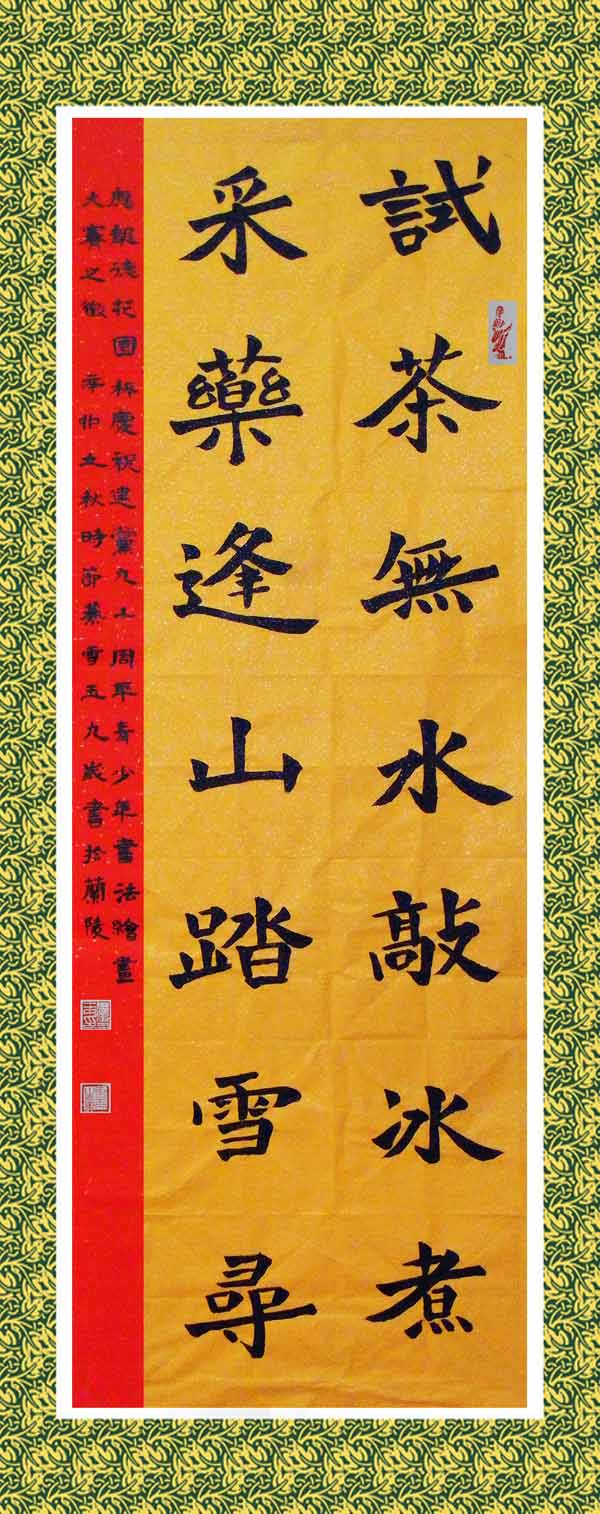 試茶無水敲冰煮
采藥逢山踏雪尋
應報德花園杯慶祝建黨九十周年青少年書法繪畫
大賽之徵 辛卯立秋時節慕雪玉九歲書於蘭陵